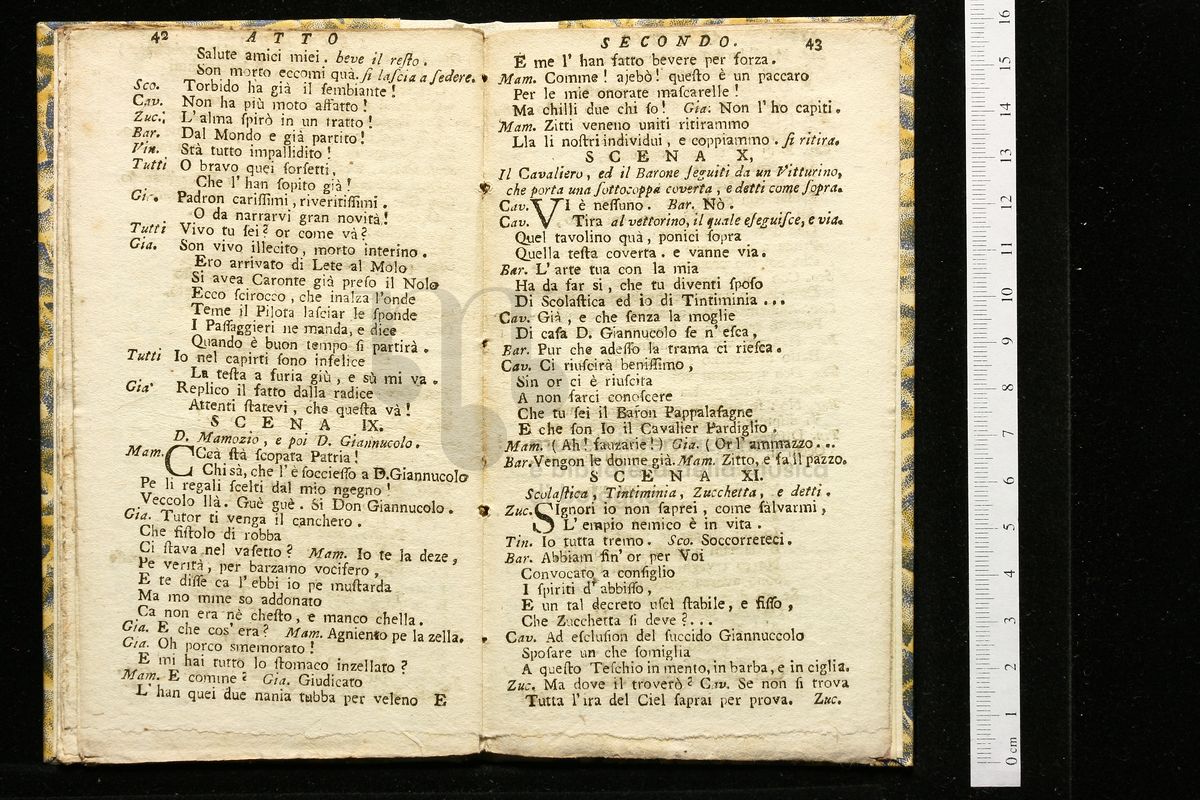 42 ATTO
Salute amici miei. beve il reſto.
Son morto eccomi quà. ſi laſcia a ſedere.
Sco. Torbido ha già il ſembiante!
Cav. Non ha più moto affatto!
Zuc. L'alma ſpirò in un tratto!
Bar. Dal Mondo e già partito!
Vin. Stà tutto impallidito!
Tutti O bravo quei ſorſetti,
Che l'han ſopito già!
Gia. Padron cariſſimi, riveritiſſimi.
O da narrarvi gran novità!
Tutti Vivo tu ſei? or come và?
Gia. Son vivo illecito, morto interino.
Ero arrivato di Lete al Molo
Si avea Caronte già preſo il Nolo
Ecco ſcirocco, che inalza l'onde
Teme il Pilota laſciar le ſponde
I Paſſaggieri ne manda, e dice
Quando è buon tempo ſi partirà.
Tutti Io nel capirti ſono infelice
La teſta a furia giù, e sù mi va.
Gia Replico il fatto dalla radice
Attenti ſtatevi, che queſta và!
SCENA IX.
D. Mamozio, e poi D. Giannucolo.
Mam. CCeà ſtà ſcopata Patria!
Chi sà, che l'è ſoccieſſo a D. Giannucolo
Pe li regali ſcelti dal mio ngegno!
Veccolo llà. Guè guè. Si Don Giannucolo.
Gia. Tutor ti venga il canchero.
Che fiſtolo di robba
Ci ſtava nel vaſetto? Mam. Io te la deze,
Pe verità, per barzamo vocifero,
E te diſſe ca l'ebbi io pe muſtarda
Ma mo mme so addonato
Ca non era nè cheſto, e manco chella.
Gia. E che cos'era? Mam. Agniento pe la zella.
Gia. Oh porco smemorato!
E mi hai tutto lo ſtomaco inzellato?
Mam. E comme? Gia. Giudicato
L'han quei due nania tubba per veleno E
SECONDO. 43
E me l'han fatto bevere per forza.
Mam. Comme! ajebò! queſto è un paccaro
Per le mie onorate maſcarelle!
Ma chilli due chi ſo! Gia. Non l'ho capiti.
Mam. Zitti veneno uniti ritirammo
Lla li noſtri individui, e coppiammo. ſi ritira.
SCENA X,
Il Cavaliero, ed il Barone ſeguiti da un Vitturino,
che porta una ſottocoppa coverta, e detti come ſopra.
Cav. VI è neſſuno. Bar. Nò.
Cav. Tira al vettorino, il quale eſeguiſce, e via.
Quel tavolino quà, ponici ſopra
Quella teſta coverta. e vanne via.
Bar. L'arte tua con la mia
Ha da far si, che tu diventi ſpoſo
Di Scolaſtica ed io di Tintiminia ...
Cav. Già, e che ſenza la moglie
Di caſa D. Giannucolo ſe n'eſca,
Bar. Pur che adeſſo la trama ci rieſca.
Cav. Ci riuſcirà beniſſimo,
Sin or ci è riuſcita
A non farci conoſcere
Che tu ſei il Baron Pappalaſagne
E che ſon Io il Cavalier Pardiglio.
Mam. (Ah! fauzarie!) Gia. (Or l'ammazzo...
Bar. Vengon le donne già. Mam. Zitto, e fa'il pazzo.
SCENA XI.
Scolaſtica, Tintiminia, Zucchetta, e detti.
Zuc. SIgnori io non ſaprei, come ſalvarmi,
L'empio nemico è in vita.
Tin. Io tutta tremo. Sco. Soccorreteci.
Bar. Abbiam fin'or per Voi
Convocato a conſiglio
I ſpiriti d'abbiſſo,
E un tal decreto uſcì ſtabile, e fiſſo,
Che Zucchetta ſi deve?...
Cav. Ad eſcluſion del ſuccido Giannuccolo
Spoſare un che ſomiglia
A queſto Teſchio in mento, in barba, e in ciglia.
Zuc. Ma dove il troverò? Cav. Se non ſi trova
Tutta l'ira del Ciel ſaprai per prova. Zuc.
0 cm 1 2 3 4 5 6 7 8 9 10 11 12 13 14 15 16